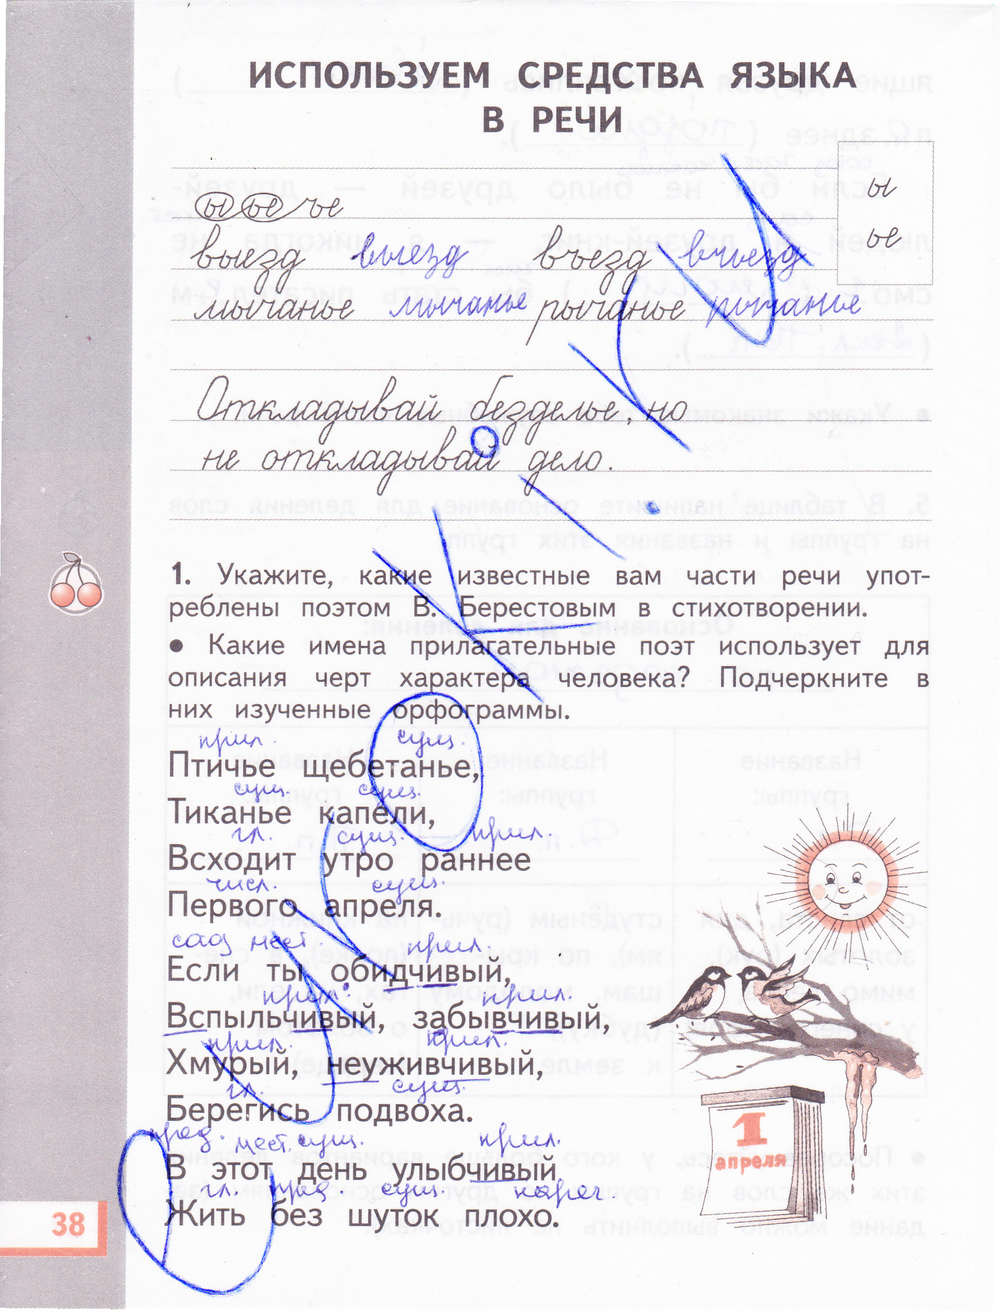 ИСПОЛЬЗУЕМ СРЕДСТВА ЯЗЫКА
В РЕЧИ
ы ье ъе
ы
ье
выезд выезд въезд въезд
мычанье мычанье рычанье рычанье
Откладывай безделье, но
не откладывай дело.
1. Укажите, какие известные вам части речи упот-
реблены поэтом В. Берестовым в стихотворении.
● Какие имена прилагательные поэт использует для
описания черт характера человека? Подчеркните в
них изученные орфограммы.
прил. сущ.
Птичье щебетанье,
сущ. сущ.
Тиканье капели,
гл. сущ. прил.
Всходит утро раннее
числ. сущ.
Первого апреля.
мест. прил.
Если ты обидчивый,
прил. прил.
Вспыльчивый, забывчивый,
прил. прил.
Хмурый, неуживчивый,
гл. сущ.
Берегись подвоха.
пред. мест. сущ. прил.
В этот день улыбчивый
гл. пред. сущ. нареч.
Жить без шуток плохо.
1
апреля
38